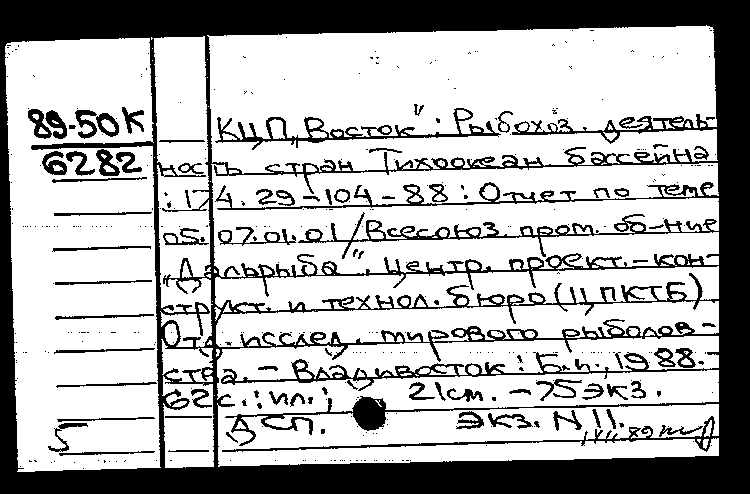 89-50К
6282
КЦП „Восток" : Рыбохоз. деятель-
ность стран Тихоокеан бассейна
: 174.29-104-88 : Отчет по теме
05.07.01.01/Всесоюз. пром. об-ние
„Дальрыба". Центр. проект.-кон-
структ. и технол. бюро (ЦПКТБ)
Отд. исслед. мирового рыболов-
ства. - Владивосток : Б.и., 1988.-
62с. : ил.; 21см. - 75экз.
ДСП. экз. N 11.
5